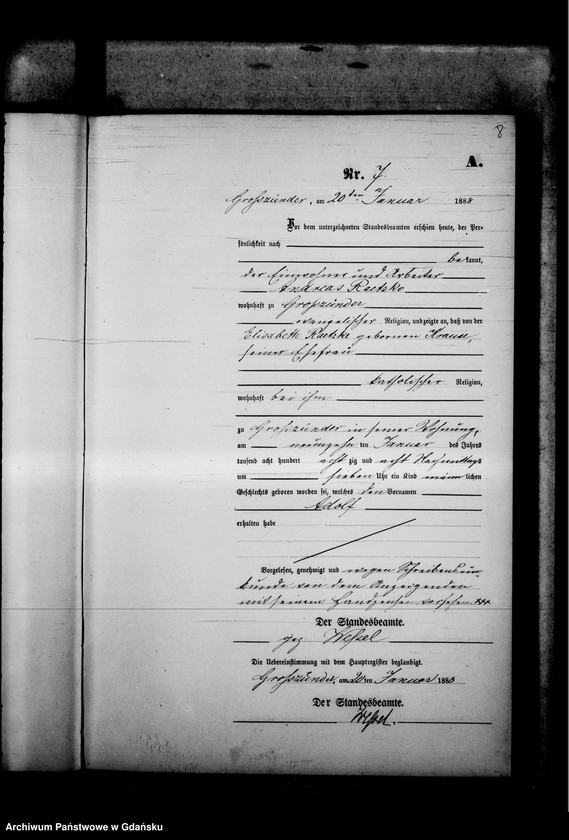 8
A.
Nr. 7.
Großzünder, am 20ten Januar 1888
Vor dem unterzeichneten Standesbeamten erschien heute, der Per-
sönlichkeit nach
bekannt,
der Einwohner und Arbeiter
Andreas Raetzke
wohnhaft zu Großzünder
evangelischer Religion, und zeigte an, daß von der
Elisabeth Raetzke gebornen Krause,
seiner Ehefrau
katholischer Religion,
wohnhaft bei ihm
zu Großzünder in seiner Wohnung,
am neunzehn ten Januar des Jahres
tausend acht hundert acht zig und acht Nachmittags
um sieben Uhr ein Kind männlichen
Geschlechts geboren worden sei, welches den Vornamen
Adolf
erhalten habe
Vorgelesen, genehmigt und wegen Schreibensun-
kunde von dem Anzeigenden
mit seinem Handzeichen versehen. xxx
Der Standesbeamte.
gez Wessel
Die Uebereinstimmung mit dem Hauptregister beglaubigt.
Großzünder, am 20ten Januar 1888
Der Standesbeamte.
Wessel.
Archiwum Państwowe w Gdańsku